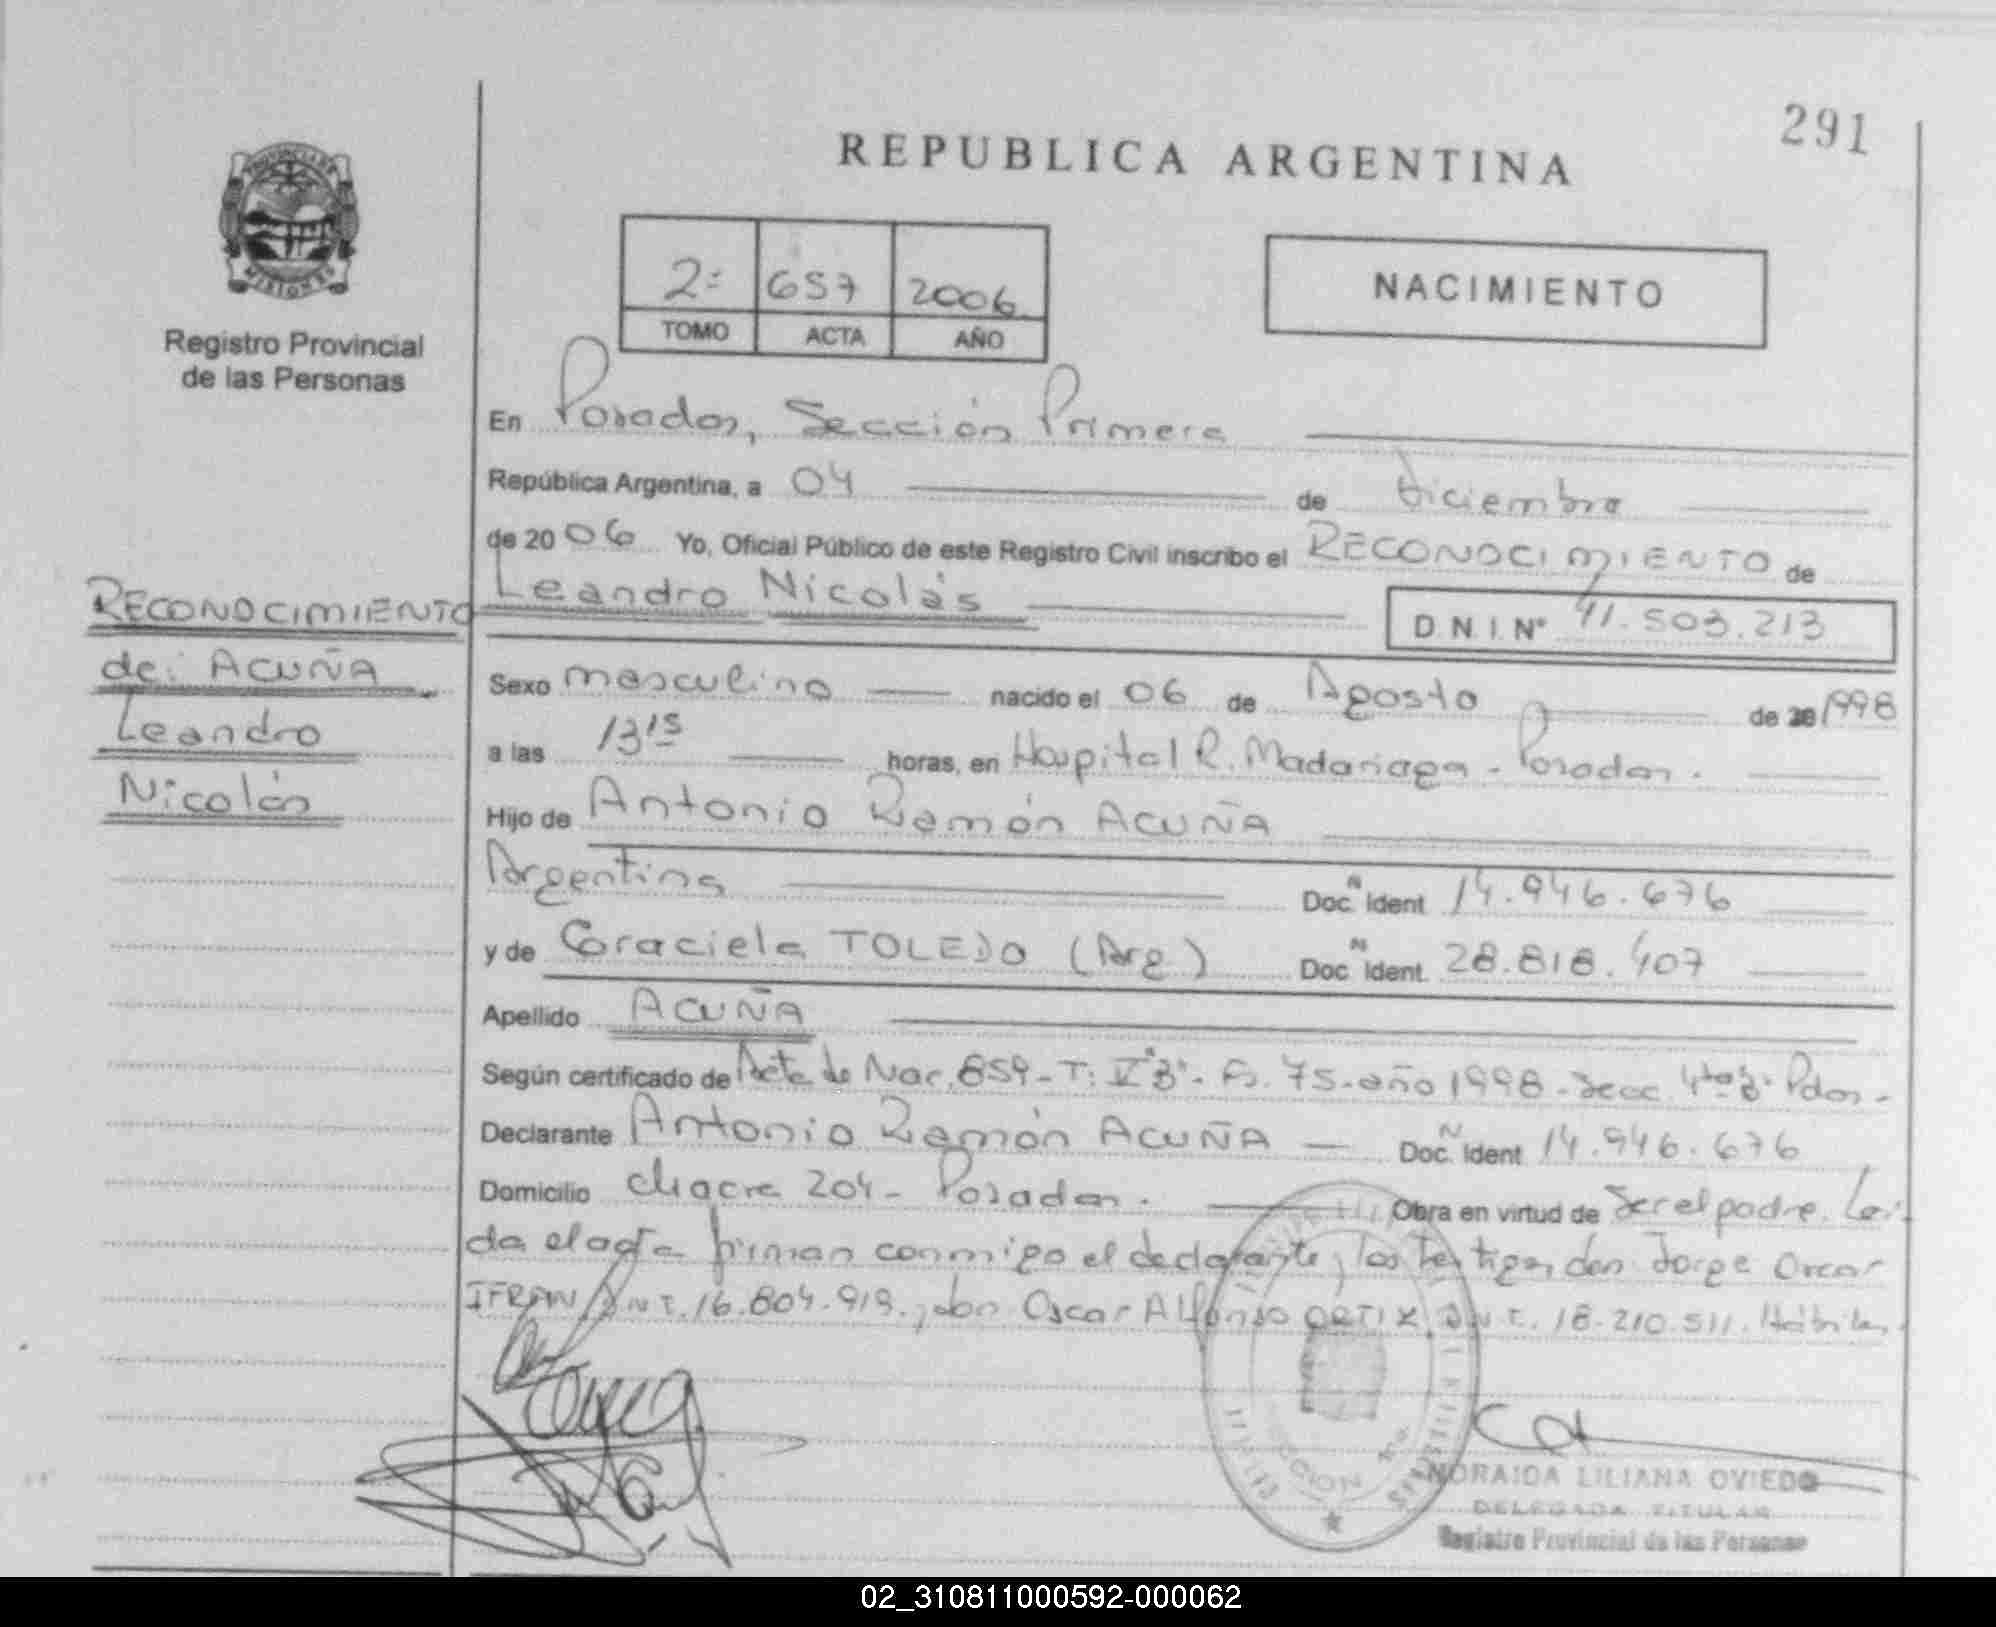 291
REPUBLICA ARGENTINA
PROVINCIA DE
MISIONES
Registro Provincial
de las Personas
2º 657 2006
TOMO ACTA AÑO
NACIMIENTO
En Posadas, Sección Primera
República Argentina, a 04 de diciembre
de 2006 Yo, Oficial Público de este Registro Civil inscribo el RECONOCIMIENTO de
Leandro Nicolás D.N.I. Nº 41.503.213
RECONOCIMIENTO
de: ACUÑA
Leandro
Nicolás
Sexo masculino nacido el 06 de Agosto de 1998
a las 13 15 horas, en Hospital R. Madariaga - Posadas.
Hijo de Antonio Ramón ACUÑA
Argentina Doc. N Ident 14.946.676
y de Graciela TOLEDO (Arg) Doc N Ident. 28.818.407
Apellido ACUÑA
Según certificado de Acta de Nac. 859 - T: Vº"B" - Fs. 75 - año 1998 - Secc. 4ta "B" Pdas -
Declarante Antonio Ramón ACUÑA — Doc. N Ident 14.946.676
Domicilio chacra 204 - Posadas. Obra en virtud de ser el padre. Leí-
da el acta firman conmigo el declarante, los testigos, don Jorge Oscar
IFRAN D.N.I. 16.804.919. y don Oscar Alfonso ORTIZ D.N.I. 18.210.511. Hábiles
NORAIDA LILIANA OVIEDO
DELEGADA TITULAR
Registro Provincial de las Personas
02_310811000592-000062